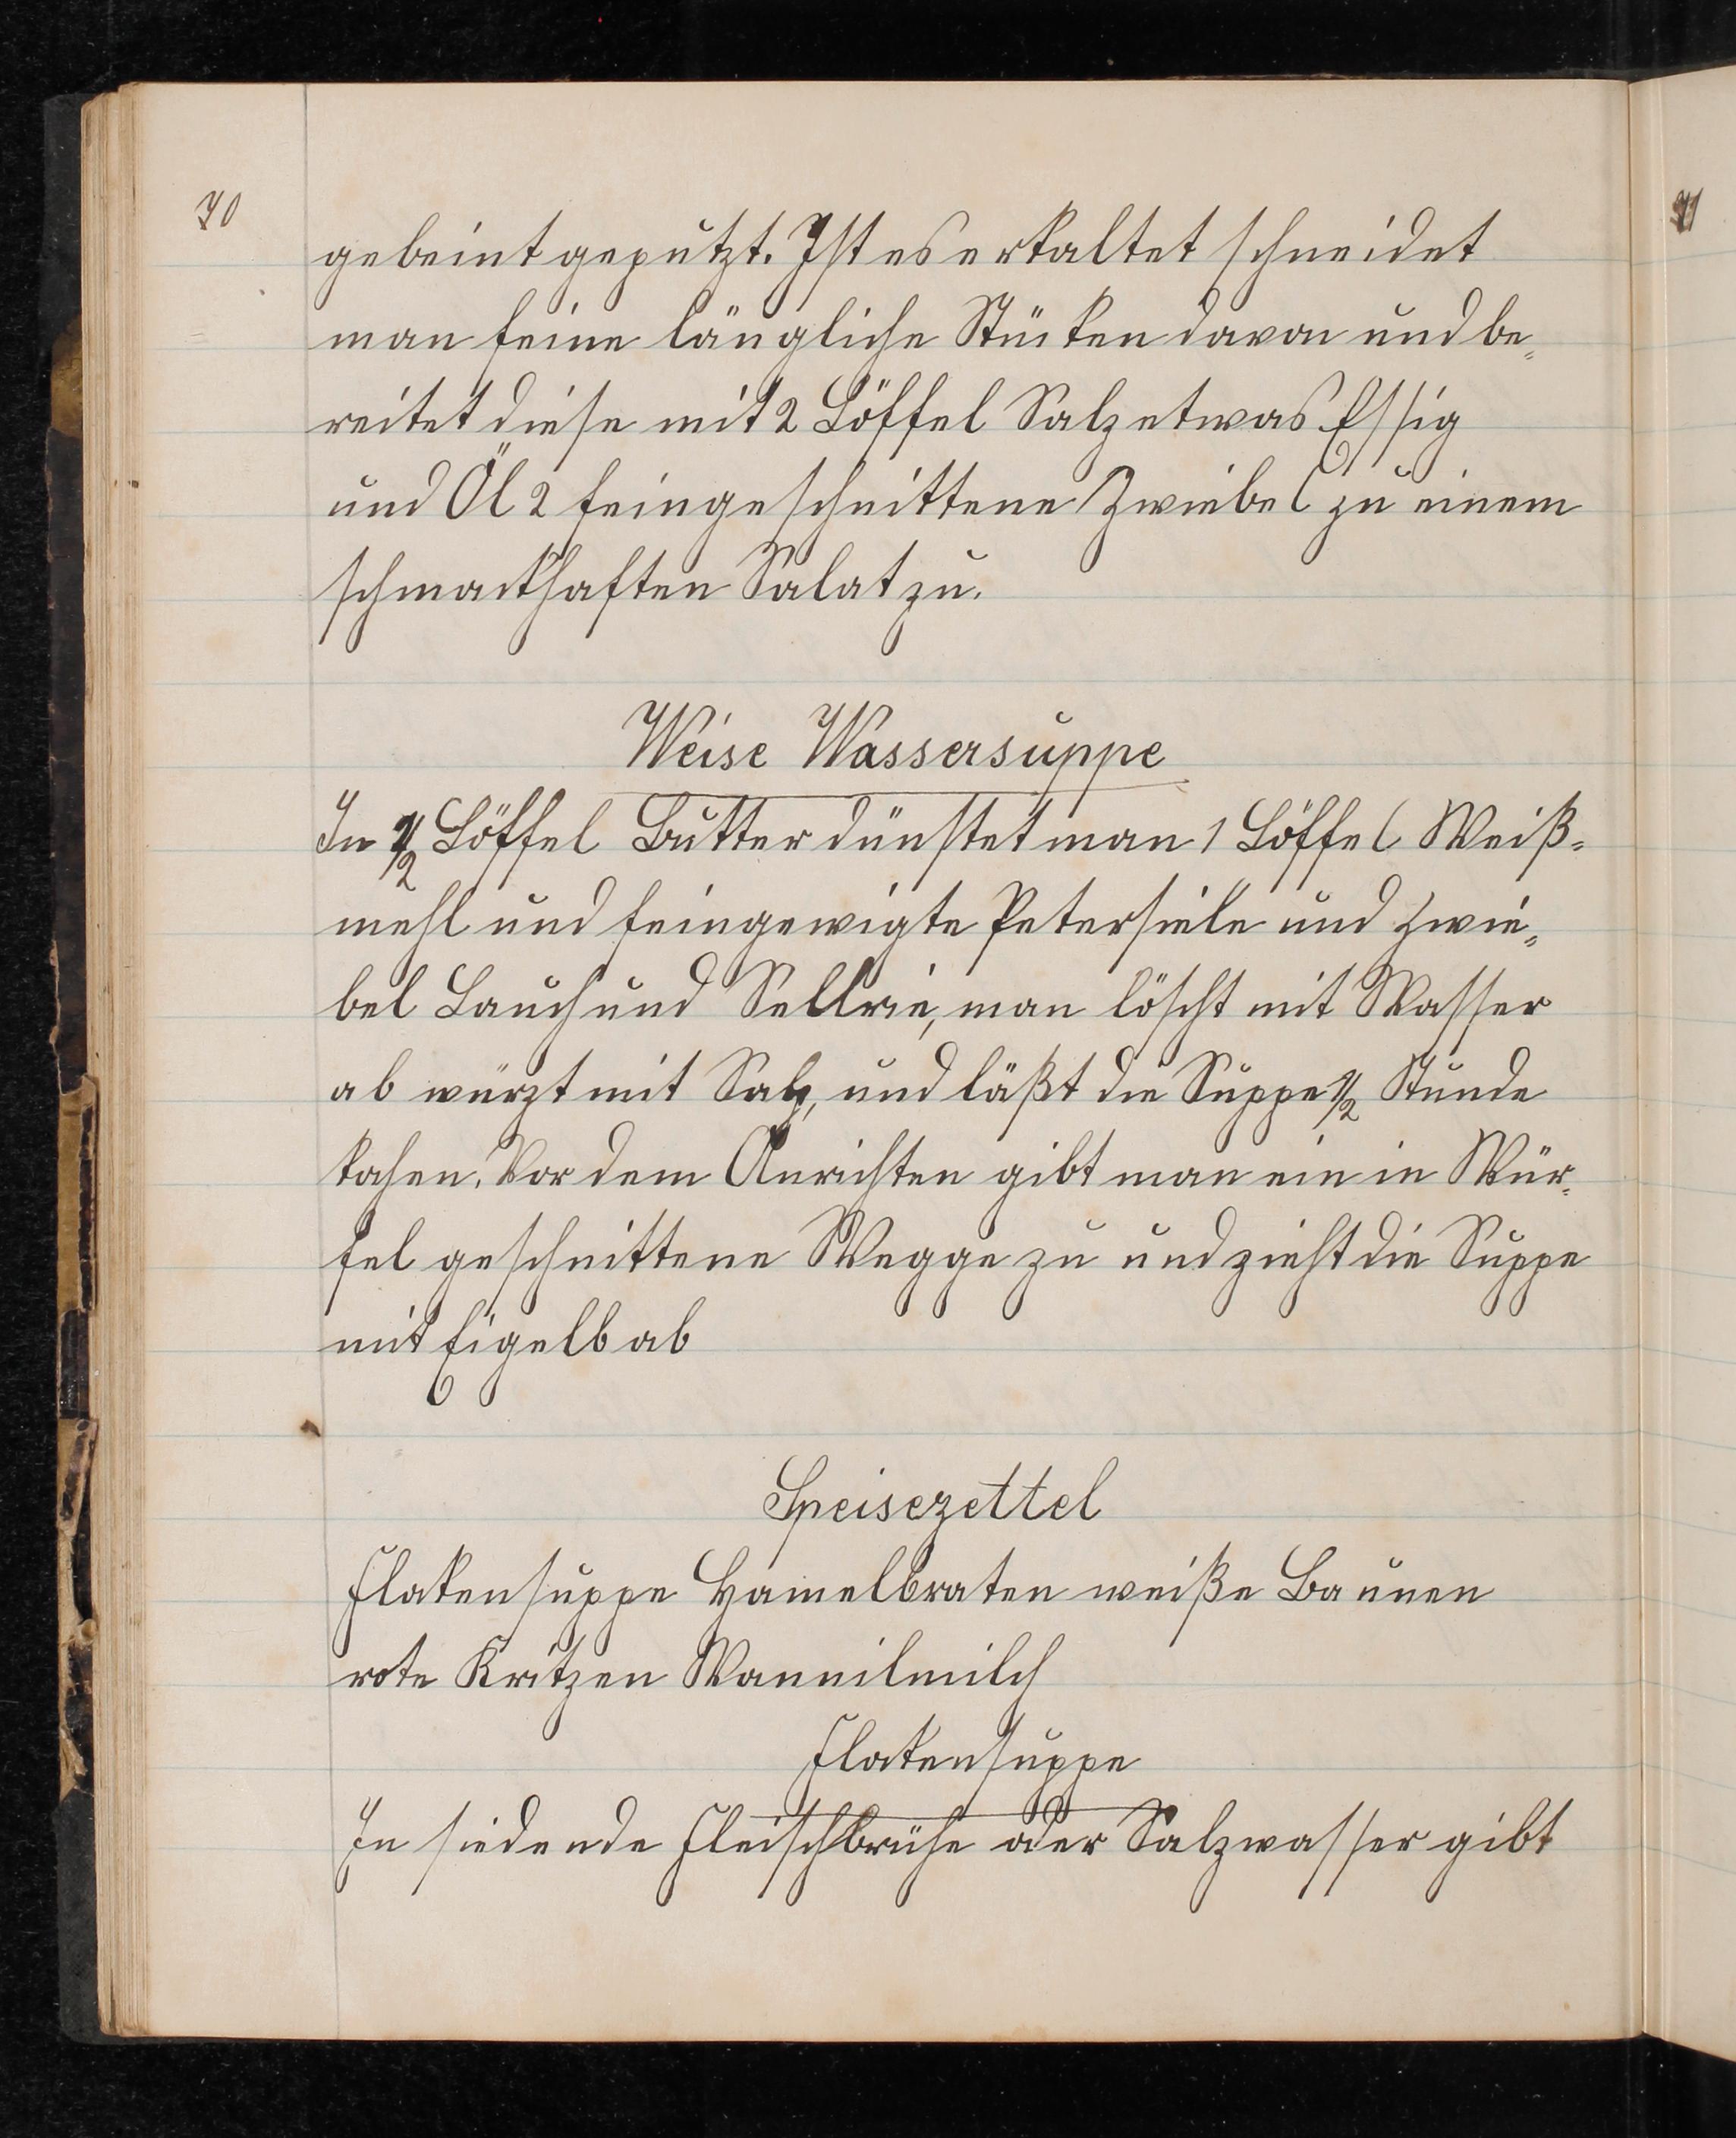 70
gebeint geputzt. Ist es erkaltet schneidet
man feine längliche Stüken davon und be„
reitet diese mit 2 Löffel Salz etwas Essig
und Öl 2 feingeschnittene Zwiebel zu einem
schmackhaften Salat zu.
Weise Wassersuppe
In ½ Löffel Butter dünstet man 1 Löffel Weiß„
mehl und feingewigte Petersiele und Zwie„
bel Lauch und Sellrie, man löscht mit Wasser
ab würzt mit Salz, und läßt die Suppe ½ Stunde
kochen. Vor dem Anrichten gibt man ein in Wür„
fel geschnittene Wegge zu und zieht die Suppe
mit Eigelb ab
Speisezettel
Flakensuppe Hamelbraten weiße Baunen
rote Kritzen Wannilmilch
Flakensuppe
In siedende Fleischbrühe oder Salzwasser gibt
71